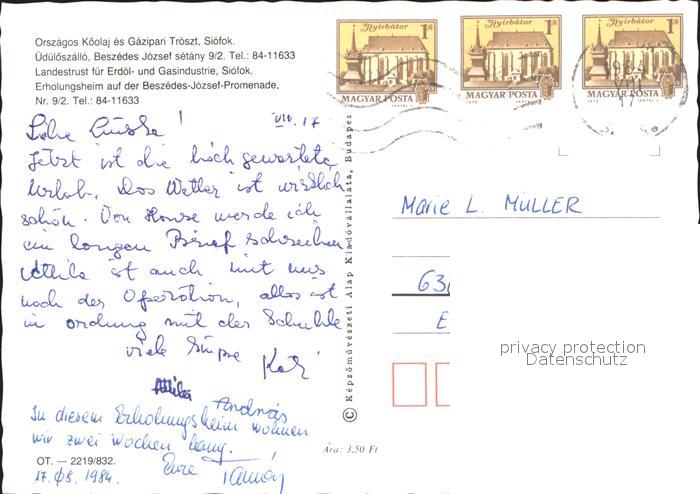 Országos Kőolaj és Gázipari Tröszt, Siófok.
Üdülőszálló, Beszédes József sétány 9/2. Tel.: 84-11633
Landestrust für Erdöl- und Gasindustrie, Siófok.
Erholungsheim auf der Beszédes-József-Promenade,
Nr. 9/2. Tel.: 84-11633
Nyírbátor 1 Ft
MAGYAR POSTA
Nyírbátor 1 Ft
MAGYAR POSTA
Nyírbátor 1 Ft
MAGYAR POSTA
VIII. 17
Liebe !
Jetzt ist die hoch gewartete
Urlob. Das Wetter ist wirklich
schön. Von Hause werde ich
ein langen Brief schreiben
Attila ist auch mit uns
noch der Operation, alles ist
in ordnung mit der Schulle
viele Küsse Kati
Attila
András
In diesem Erholungsheim wohnen
wir zwei Wochen lang.
Eure Tamás
OT. — 2219/832.
17. 08. 1984.
Ára: 3,50 Ft
© Képzőművészeti Alap Kiadóvállalata, Budapest
Marie L. MÜLLER
63
E
privacy protection
Datenschutz